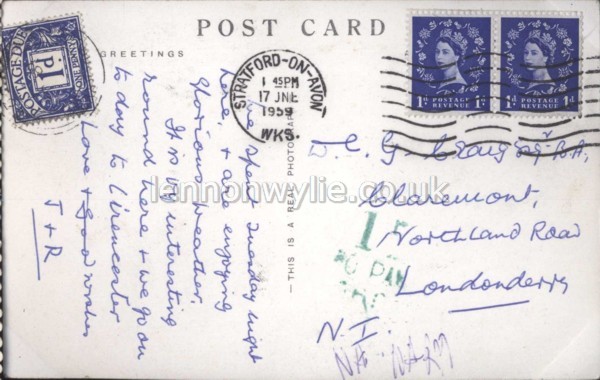 POST CARD
GREETINGS
POSTAGE DUE
1D.
ONE PENNY
STRATFORD-ON-AVON
1 45PM
17 JNE
1959
WKS.
1D POSTAGE REVENUE 1D
1D POSTAGE REVENUE 1D
We spent Tuesday night
here, + are enjoying
glorious weather.
It is v interesting
round here + we go on
to day to Cirencester
Love + good wishes
J + R
THIS IS A REAL PHOTOGRAPH
D. C. G. Craig Esqr B.A.,
Claremont,
Northland Road
Londonderry
N. I.
1D
TO PAY
lennonwylie.co.uk